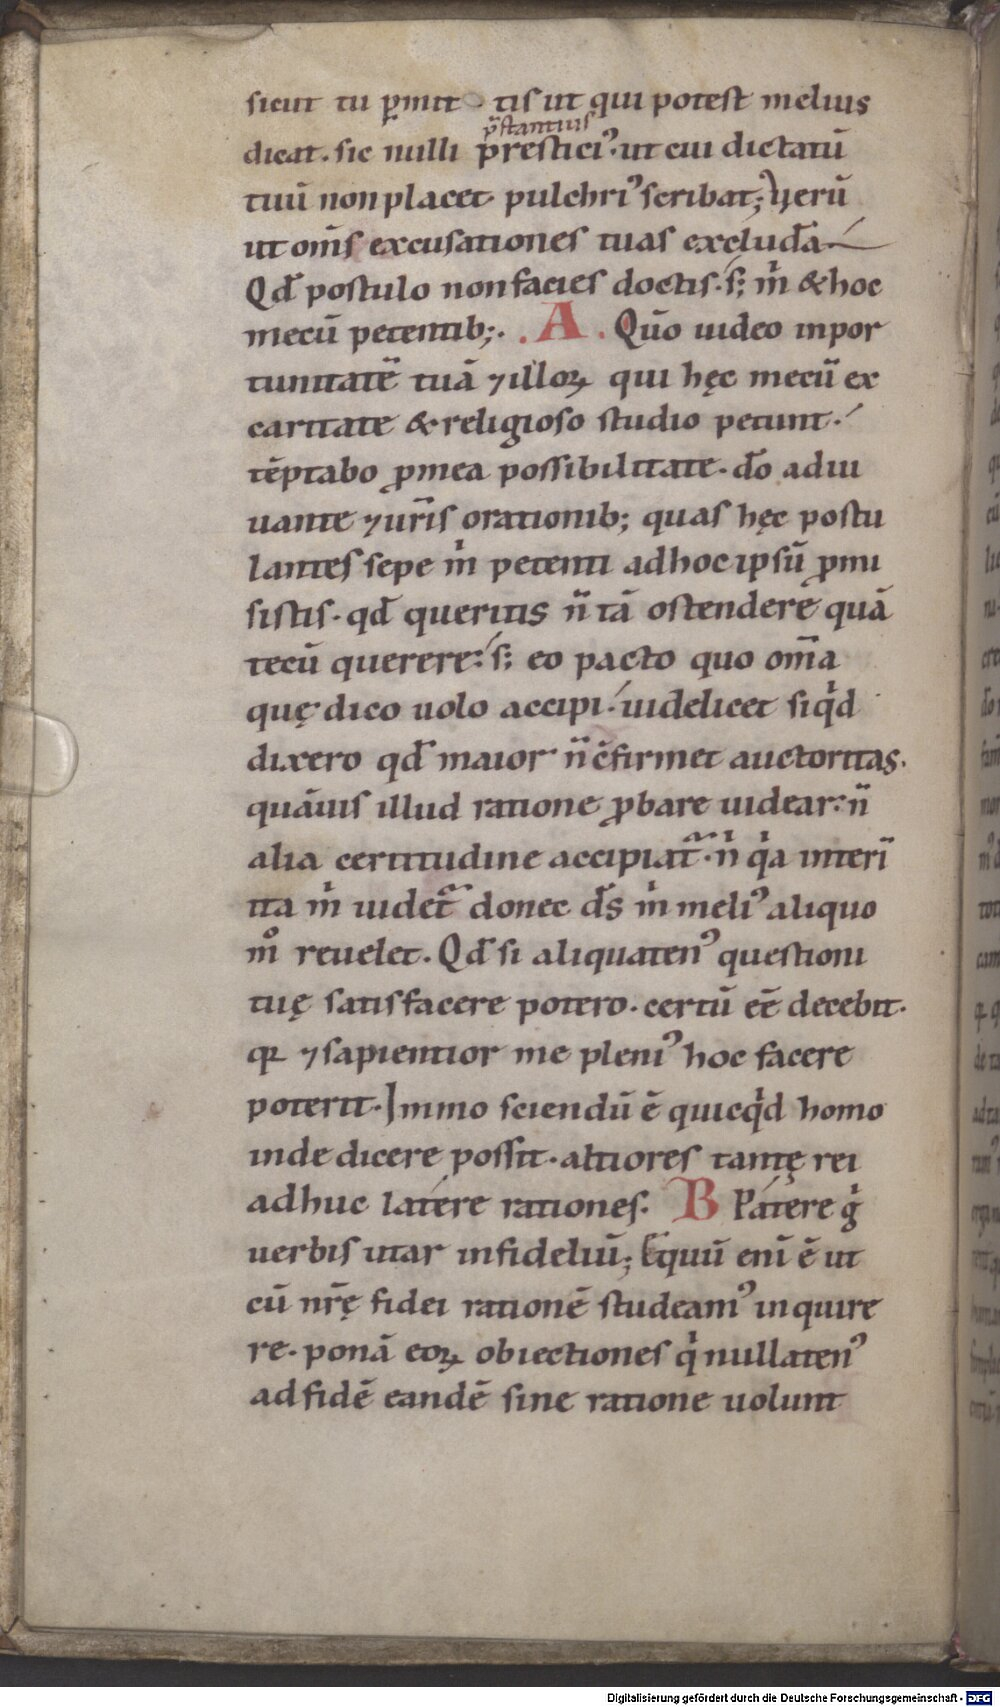 sicut tu ꝑmit tis ut qui potest melius
p̄stantius
dicat. sic nulli prestici᾽. ut cui dictatū
tuū non placet. pulchri᾽ scribat; Verū
ut om̄s excusationes tuas excludā.
Qd̄ postulo non facies doctis. s; ṁ & hoc
mecū petentib;. . A . Qūo uideo inpor
tunitatē tuā ⁊ illoꝝ qui hęc mecū ex
caritate & religioso studio petunt.
tēptabo ꝓ mea possibilitate. dō adiu
uante ⁊ ur̄is orationib; quas hęc postu
lantes sepe ṁ petenti ad hoc ipsū ꝓmi
sistis. qd̄ queritis n̄ tā ostendere quā
tecū querere: s; eo pacto quo om̄a
quę dico uolo accipi. uidelicet siq̇d
dixero qd̄ maior n̄ c̄firmet auctoritas.
quāuis illud ratione ꝓbare uidear: n̄
alia certitudine accipiat̄. ṅ q̇a interī
ita ṁ uidet̄ donec d̄s ṁ meli᾽ aliquo
m̊ reuelet. Qd̄ si aliquaten᾽ questioni
tuę satisfacere potero. certū eē decebit.
qꝛ ⁊ sapientior me pleni᾽ hoc facere
poterit. Immo sciendū ē quicq̇d homo
inde dicere possit. altiores tantę rei
adhuc latere rationes. B Patere ġ
uerbis utar infideliū; Equū enī ē ut
cū nr̄ę fidei rationē studeam᾽ inquire
re. ponā eoꝝ obiectiones q̇ nullaten᾽
ad fidē eandē sine ratione uolunt
Digitalisierung gefördert durch die Deutsche Forschungsgemeinschaft - DFG